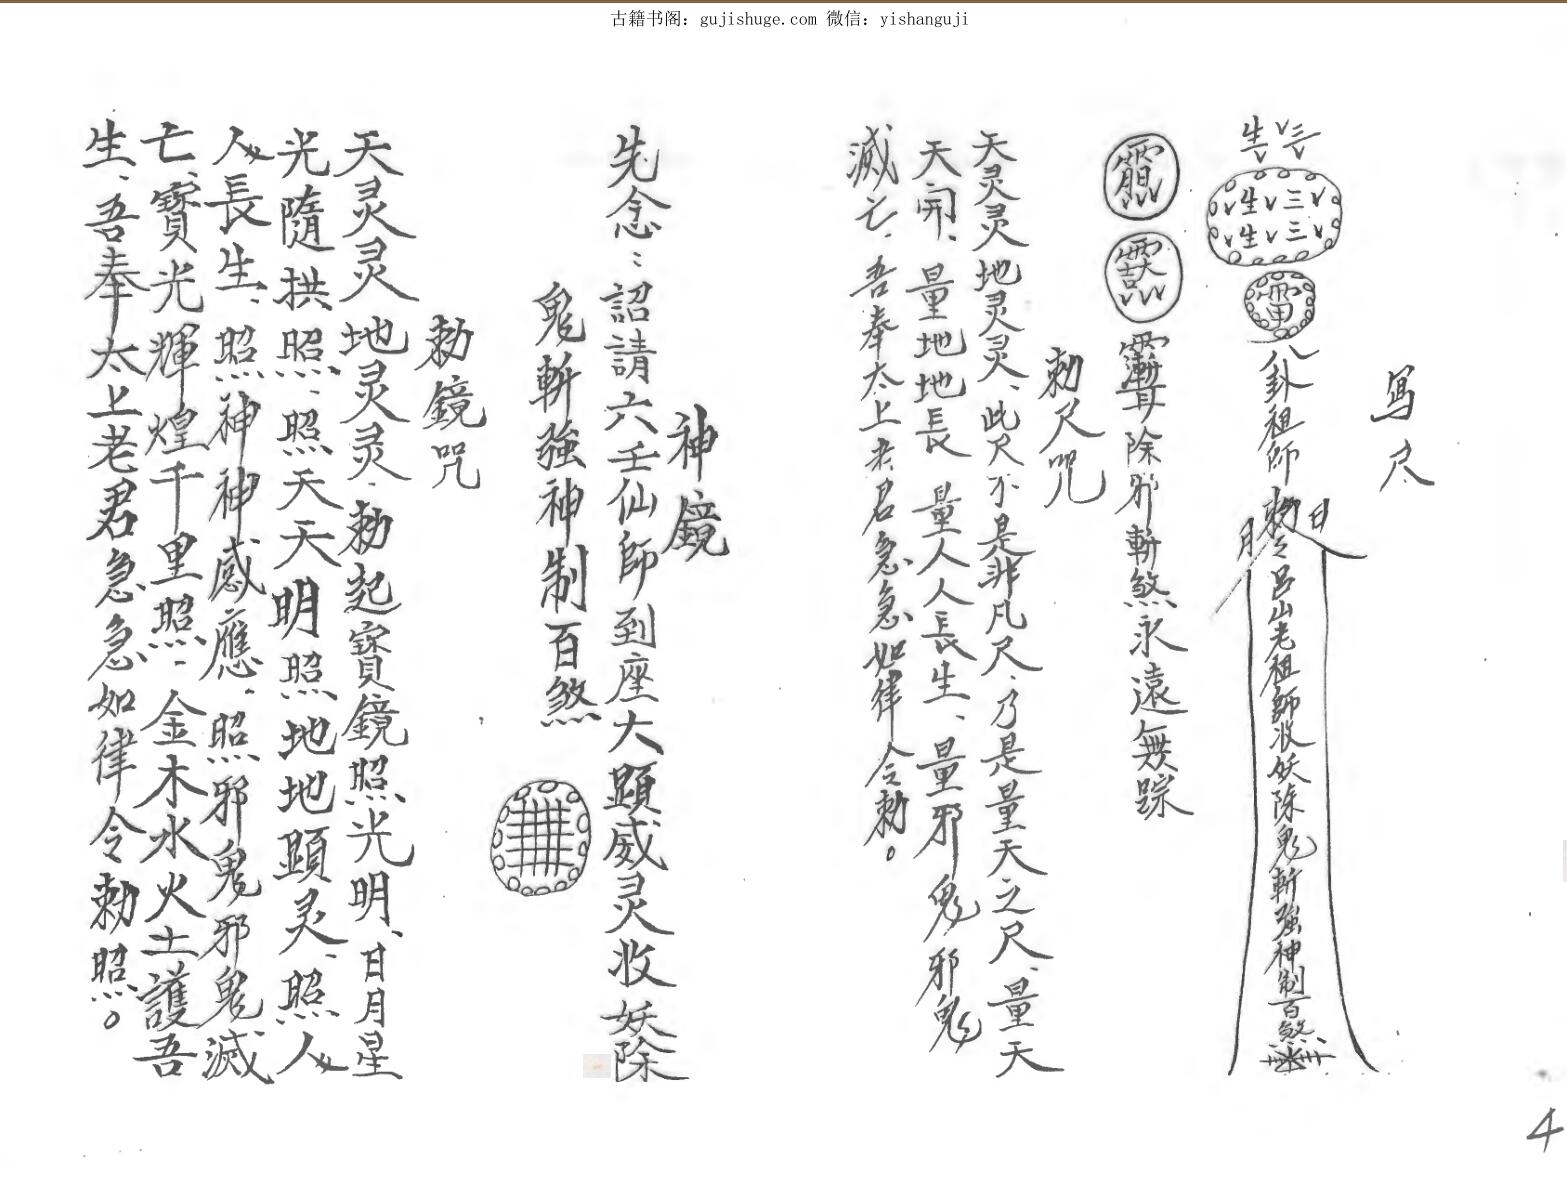 古籍书阁：gujishuge.com 微信：yishanguji
寫尺
生 三
生 三 生 三
雷
八卦祖師勅令呂山老祖師收妖除鬼斬強神制百煞
日
月
除邪斬煞永遠無踪
勅尺咒
天灵灵地灵灵、此尺不是非凡尺、乃是量天之尺、量天
天開、量地地長 量人人長生、量邪鬼邪鬼
滅亡、吾奉太上老君急急如律令勅。
神鏡
先念：詔請六壬仙師到座大顕威灵收妖除
鬼斬強神制百煞
勅鏡咒
天灵灵地灵灵、勅起寶鏡照光明、日月星
光隨拱照、照天天明照地地顕灵、照人
人長生、照神神感應、照邪鬼邪鬼滅
亡、寶光輝煌千里照、金木水火土護吾
生、吾奉太上老君急急如律令勅照。
4